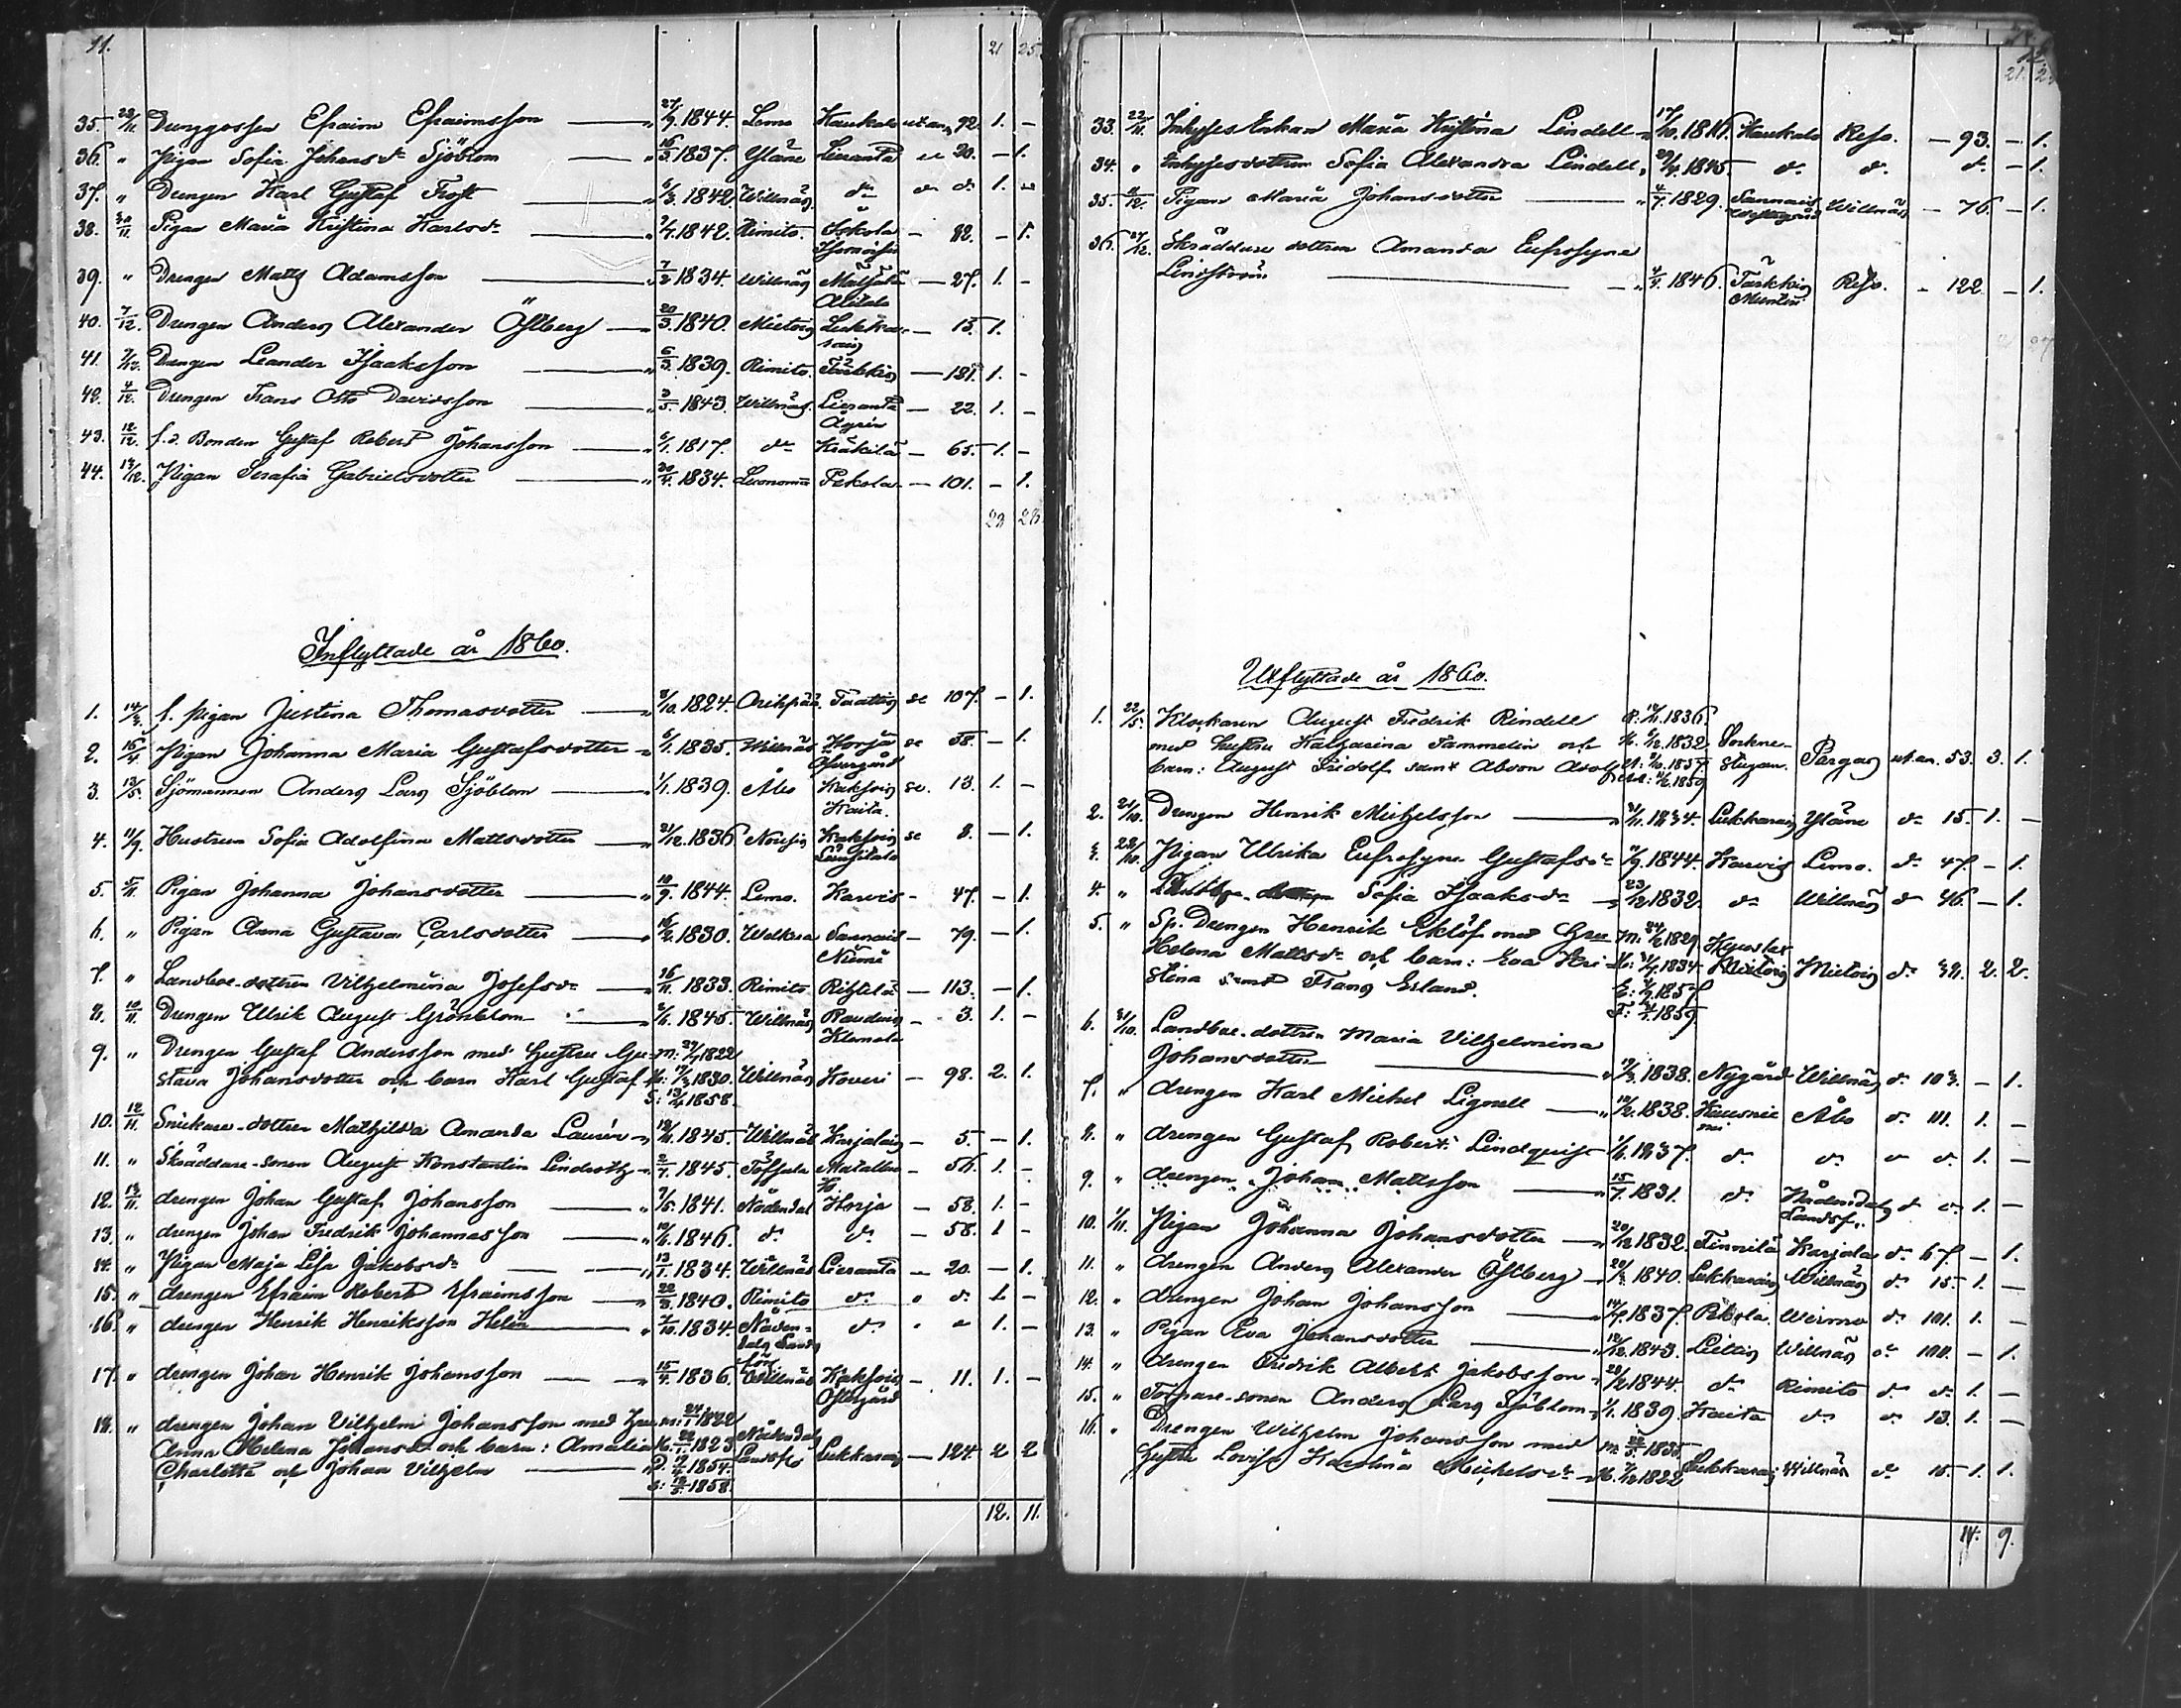 11. 21 25.
35. 22/11. Drenggossen Efraim Efraimsson 27/9. 1844. Lemo Kaukola ut. an. 92. 1. -
36. " Pigan Sofia Johansdr Sjöblom 16/5. 1837. Yläne Lieranta 20. - 1.
37. " Drengen Karl Gustaf Frost 6/3. 1842. Willnäs do do 1. -
38. 30/11. Pigan Maria Kristina Karlsdr 2/7. 1842. Rimito. - 82. - 1.
39. " Drengen Matts Adamsson 7/2 1834. Willnäs - 27. 1. -
Alitalo
40. 7/12. Drengen Anders Alexander Östberg 20/3. 1840. Mietois Lukka- - 15. 1.
rais
41. 9/12. Drengen Leander Isaaksson 6/3. 1839. Rimito. Tärkkis - 181. 1. -
42. 4/12. Drengen Frans Otto Davidsson 3/5. 1843. Willnäs. Lieranta - 22. 1. -
Ågrén
43. 12/12. f.d. Bonden Gustaf Robert Johansson 6/1. 1817. do - 65. 1. -
44. 14/12. Pigan Serafia Gabrielsdotter 20/4. 1834. Pekola - 101. - 1.
29 28.
Inflyttade år 1860.
1. 14/3. f. pigan Justina Thomasdotter 8/10. 1824. Oripää Taattis se 107. - 1.
2. 15/4. Pigan Johanna Maria Gustafsdotter 6/1. 1835. Willnäs Horja se 58. - 1.
Öfvergård
3. 13/5. Sjömannen Anders Lars Sjöblom 1/1. 1839. Åbo Kaksois se. 13. 1. -
Kaita.
4. 11/9. Hustrun Sofia Adolfina Mattsdotter 21/12. 1836 Nousis Kaksois se 8. - 1.
Länsitalo
5. 5/11. Pigan Johanna Johansdotter 10/9. 1844. Lemo. Karvis - 47. - 1.
6. " Pigan Anna Gustava Carlsdotter 16/2. 1830. Welkua Sannais - 79. - 1.
Niemi
7. " Landboe-dottren Vilhelmina Josefsdr 16/11. 1833. Rimito Rihtilä - 113. - 1.
8. 10/11. Drengen Ulrik August Grönblom 2/6. 1845. Willnäs Rauduis - 3. 1. -
Klemola
9. " Drengen Gustaf Andersson med Hustru Gu- m: 27/7 1822
stava Johansdotter och barn Karl Gustaf H: 17/3 1830. Willnäs Koveri - 98. 2. 1.
S: 13/4 1858.
10. 12/11. Snickare-dottren Mathilda Amanda Laurén 18/11. 1845. Willnäs Karjalais - 5. - 1.
11. " Skräddare-sonen August Konstantin Lindroth 2/7. 1845. Töfsala - 56. 1. -
12. 13/11. drengen Johan Gustaf Johansson 9/5. 1841. Nådendal Horja - 58. 1. -
13. " drengen Johan Fredrik Johannasson 10/6. 1846. do do - 58. 1 -
14. " Pigan Maja Lisa Jakobsdr 13/1. 1834. Willnäs Lieranta - 20. - 1.
15. " drengen Efraim Robert Efraimsson 22/3. 1840. Rimito do " do 1. -
16. " drengen Henrik Henriksson Helin 3/10. 1834. Nåden- do " " 1. -
dals Lands
förs.
17. " drengen Johan Henrik Johansson 15/4. 1836. Willnäs Kaksois - 11. 1. -
Östergård
18. " drengen Johan Vilhelm Johansson med Hu m: 24/1 1822
Anna Helena Johansdr och barn: Amalia H. 22/7. 1823 Nådendals
Charlotta och Johan Vilhelm D. 19/4. 1854. Landsfs Lukkarais - 124. 2 2
S: 13/5. 1858.
12. 11.
12.
21. 2
33. 22/11. Inhyses Enkan Maria Kristina Lindell 17/10. 1816. Kaukola Reso. - 93. - 1.
34. " Inhysesdottren Sofia Alexandra Lindell 29/4. 1845. do. do. do. - 1.
35. 11/12. Pigan Maria Johansdotter 4/7. 1829. Sannais Willnäs - 76. - 1.
Westergård
36. 27/12. Skräddare dottren Amanda Eufrosyna
Lindström 4/4. 1846. Tärkkis Reso. - 122 - 1.
Utflyttade år 1860.
1. 22/5. Klockaren August Fredrik Rindell 1836.
med hustru Katharina Tammelin och H. 5/12. 1832. Sockne-
barn: August Fridolf samt Abdon Adolf 1857 stugan. Pargas ut.an. 53. 3. 1.
1859
2. 21/10. Drengen Henrik Michelsson 21/11. 1834. Lukkarais Yläne do 15. 1. -
3. 22/10. Pigan Ulrika Eufrosyne Gustafsdr 11/9. 1844. Karvis Lemo. do 47. - 1.
4. " Sofia Isaaksdr 23/12 1832. do Willnäs do 46. - 1.
5. " Sp. Drengen Henrik Eklöf med Hu m. 24/2 1829.
Helena Mattsdr och barn: Eva Kri- H: 21/7. 1834. Mietois do 2. 2.
stina samt Frans Erland. E: 1857
F: 1859.
6. 31/10. Landboe-dottren Maria Vilhelmina
Johansdotter 19/3. 1838. Nygård Willnäs do 103. - 1.
7. " drengen Karl Michel Lignell 19/2. 1838. Åbo do 111. 1. -
8. " drengen Gustaf Robert Lindquist 1/6. 1837. do. do. do do. 1. -
9. " drengen Johan Mattsson 15/7. 1831. do Nådendals do do. 1. -
Landsf..
10. 1/11. Pigan Johanna Johansdotter 20/12 1832. Finnilä Karjala do 67. - 1.
11. " drengen Anders Alexander Östberg 20/3. 1840. Lukkarais Willnäs do 15. 1. -
12. " drengen Johan Johansson 14/7. 1837. Pekola Wirmo do 101. 1. -
13. " Pigan Eva Johansdotter 12/12. 1843. Willnäs do 100. - 1.
14. " drengen Fredrik Albert Jakobsson 28/2 1844. do Rimito do do 1. -
15. " Torpare-sonen Anders Lars Sjöblom 1/1. 1839. Kaita do do 13. 1. -
16. " Drengen Wilhelm Johansson med m. 22/5. 1835.
Hustru Lovisa Karolina Michelsdr H. 7/12 1822 Lukkarais Willnäs do 15. 1. 1.
14. 9.